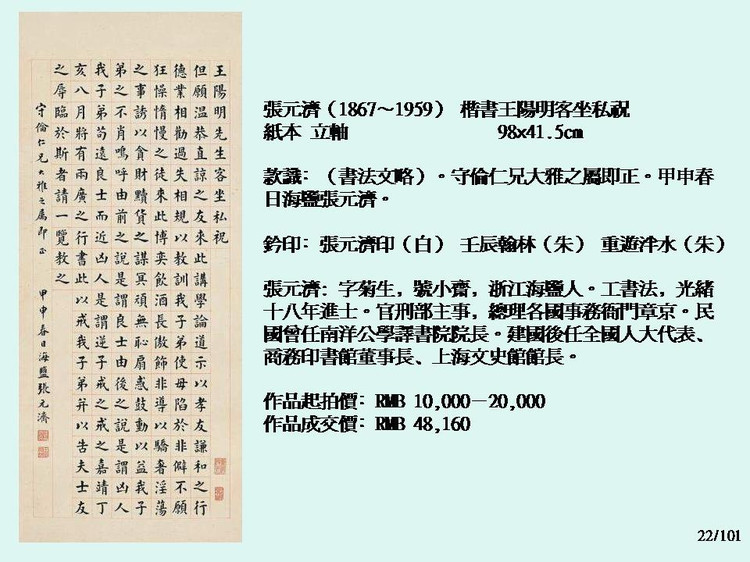 王陽明先生客坐私祝
但願溫恭直諒之友來此講學論道示以孝友謙和之行
德業相勸過失相規以教訓我子弟使毋陷於非僻不願
狂懆惰慢之徒來此博奕飲酒長傲飾非導以驕奢淫蕩
之事誘以貪財黷貨之謀冥頑無恥扇惑鼓動以益我子
弟之不肖嗚呼由前之說是謂良士由後之說是謂凶人
我子弟苟遠良士而近凶人是謂逆子戒之戒之嘉靖丁
亥八月將有兩廣之行書此以戒我子弟并以告夫士友
之辱臨於斯者請一覽教之
守倫仁兄大雅之屬即正 甲申春日海鹽張元濟
張元濟（1867～1959） 楷書王陽明客坐私祝
紙本 立軸 98x41.5cm
款識：（書法文略）。守倫仁兄大雅之屬即正。甲申春
日海鹽張元濟。
鈐印：張元濟印（白） 壬辰翰林（朱） 重遊泮水（朱）
張元濟：字菊生，號小齋，浙江海鹽人。工書法，光緒
十八年進士。官刑部主事，總理各國事務衙門章京。民
國曾任南洋公學譯書院院長。建國後任全國人大代表、
商務印書館董事長、上海文史館館長。
作品起拍價：RMB 10,000－20,000
作品成交價：RMB 48,160
22/101